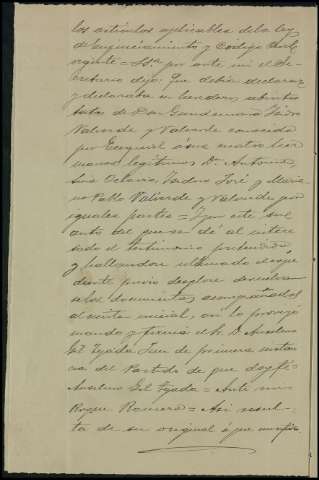 los artículos aplicables de la Ley
de Enjuiciamiento y Código Civil
vigente = S.Sª por ante mi el Se-
cretario dijo: Que debia declarar
y declaraba herederos abintes
tatos de Don Gaudencio Isidro
Valverde y Valverde conocido
por Ezequiel á sus cuatro her
manos legitimos Dn. Antonio,
Octavio, Isidoro José y Maria
no Pablo Valverde y Valverde por
iguales partes = Y por este su
auto del que se dé al intere
sado el testimonio prevenido
y hallandose ultimado el expe
diente previo desglose devuelvan
selos documentos acompañados
al escrito inicial, asi lo proveyó
mandó y firma el Sr. D. Anselmo
Gil Tejada Juez de primera instan
cia del Partido de que doy fé =
Anselmo Gil Tejada = Ante mi =
Roque Romero = Asi resul-
ta de su original á que me refiero